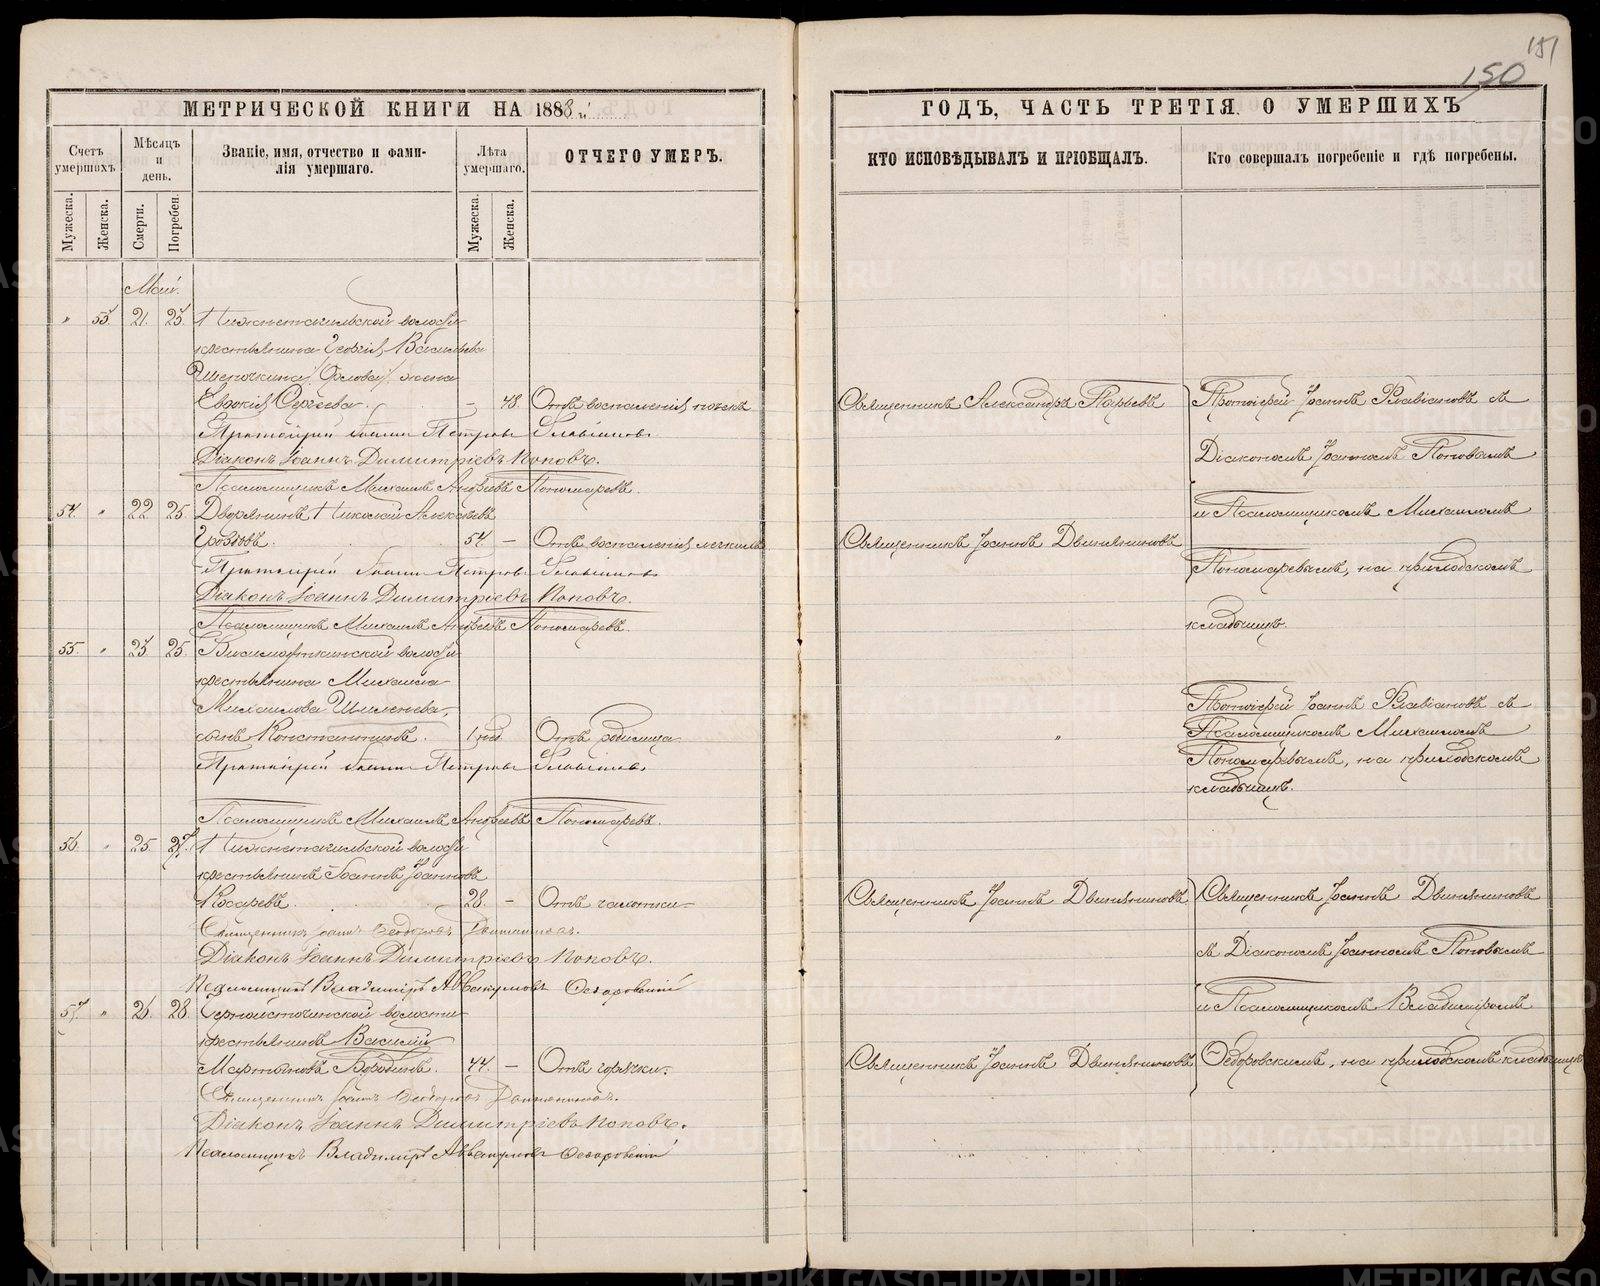 151
150
МЕТРИЧЕСКОЙ КНИГИ НА 1888 г.
Счетъ умершихъ
Мѣсяцъ и день.
Званіе, имя, отчество и фами-
лія умершаго.
Лѣта умершаго.
ОТЧЕГО УМЕРЪ.
Мужеска.
Женска.
Смерти.
Погребен.
Мужеска.
Женска.
Май.
" 55. 21. 25. Нижнетагильской волости
крестьянина Георгія Васильева
Щепочкина (Орлова) жена
Евдокія Сергѣева. – 48. Отъ воспаленія почекъ
Протоіерей Іоаннъ Петровъ Флавіановъ.
Діаконъ Іоаннъ Димитріевъ Поповъ.
Псаломщикъ Михаилъ Андреевъ Пономаревъ.
54. " 22. 25. Дворянинъ Николай Алексѣевъ
54 – Отъ воспаленія легкихъ
Протоіерей Іоаннъ Петровъ Флавіановъ
Діаконъ Іоаннъ Димитріевъ Поповъ.
Псаломщикъ Михаилъ Андреевъ Пономаревъ.
55. " 23. 25. Висимоуткинской волости
крестьянина Михаила
Михайлова
сынъ Константинъ. 1 Отъ родимца
Протоіерей Іоаннъ Петровъ Флавіановъ
Псаломщикъ Михаилъ Андреевъ Пономаревъ.
56. " 25. 27. Нижнетагильской волости
крестьянинъ Іоаннъ Іоанновъ
Косаревъ. 28. – Отъ чахотки
Священникъ Іоаннъ Феодоровъ Двиняниновъ.
Діаконъ Іоаннъ Димитріевъ Поповъ.
Псаломщикъ Владиміръ Аввакумовъ Ѳедоровскій
57. " 26. 28. Черноисточинской волости
крестьянинъ Василій
Мартыновъ Бородинъ. 44. – Отъ горячки.
Священникъ Іоаннъ Феодоровъ Двиняниновъ.
Діаконъ Іоаннъ Димитріевъ Поповъ.
Псаломщикъ Владиміръ Аввакумовъ Ѳедоровскій
ГОДЪ, ЧАСТЬ ТРЕТІЯ. О УМЕРШИХЪ
КТО ИСПОВѢДЫВАЛЪ И ПРІОБЩАЛЪ.
Кто совершалъ погребеніе и гдѣ погребены.
Священникъ Александръ
Протоіерей Іоаннъ Флавіановъ съ
Діакономъ Іоанномъ Поповымъ
и Псаломщикомъ Михаиломъ
Священникъ Іоаннъ Двиняниновъ
Пономаревымъ, на приходскомъ
кладбищѣ.
Протоіерей Іоаннъ Флавіановъ съ
" Псаломщикомъ Михаиломъ
Пономаревымъ, на приходскомъ
кладбищѣ.
Священникъ Іоаннъ Двиняниновъ
Священникъ Іоаннъ Двиняниновъ
съ Діакономъ Іоанномъ Поповымъ
и Псаломщикомъ Владиміромъ
Священникъ Іоаннъ Двиняниновъ
Ѳедоровскимъ, на приходскомъ кладбищѣ
METRIKI.GASO-URAL.RU